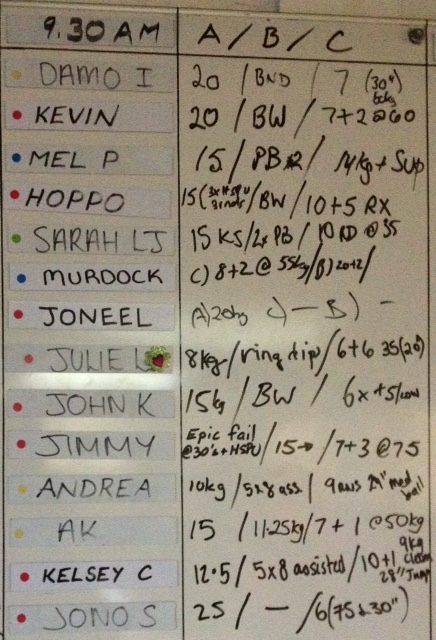 9.30 AM A / B / C
DAMO I 20 / BND / 7 (30"
KEVIN 20 / BW / 7+2 @60
MEL P 15 / PB / 14kg + Sup
HOPPO 15 (3x HSPU / BW / 10+5 RX
SARAH LJ 15 KS / 2x PB / 10 RD @ 35
MURDOCK C) 8+2 @ 55kg / B) 20+2 /
JONEEL A) 20kg C) — B) –
JULIE L 8kg / ring dip / 6+6 35(20)
JOHN K 15kg / BW / 6x +5/
JIMMY Epic fail @30's + HSPU / 15 → / 7+3 @75
ANDREA 10kg / 5x8 ass / 9 24" med ball
AK 15 / 11.25kg / 7 + 1 @50kg
KELSEY C 12.5 / 5x8 assisted / 10+1 9kg 28" Jump
JONO S 25 / — / 6(75 & 30")